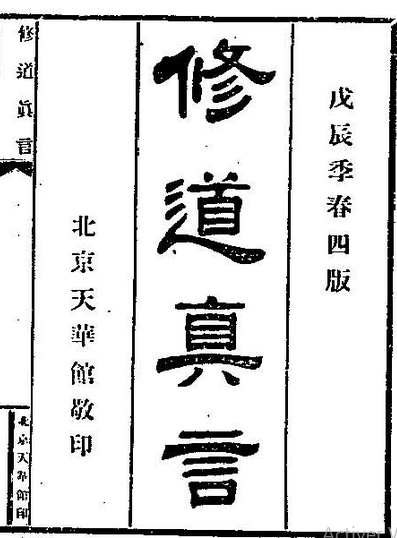 戊辰季春四版
修道真言
北京天華館敬印
修道眞言
北京天華館印